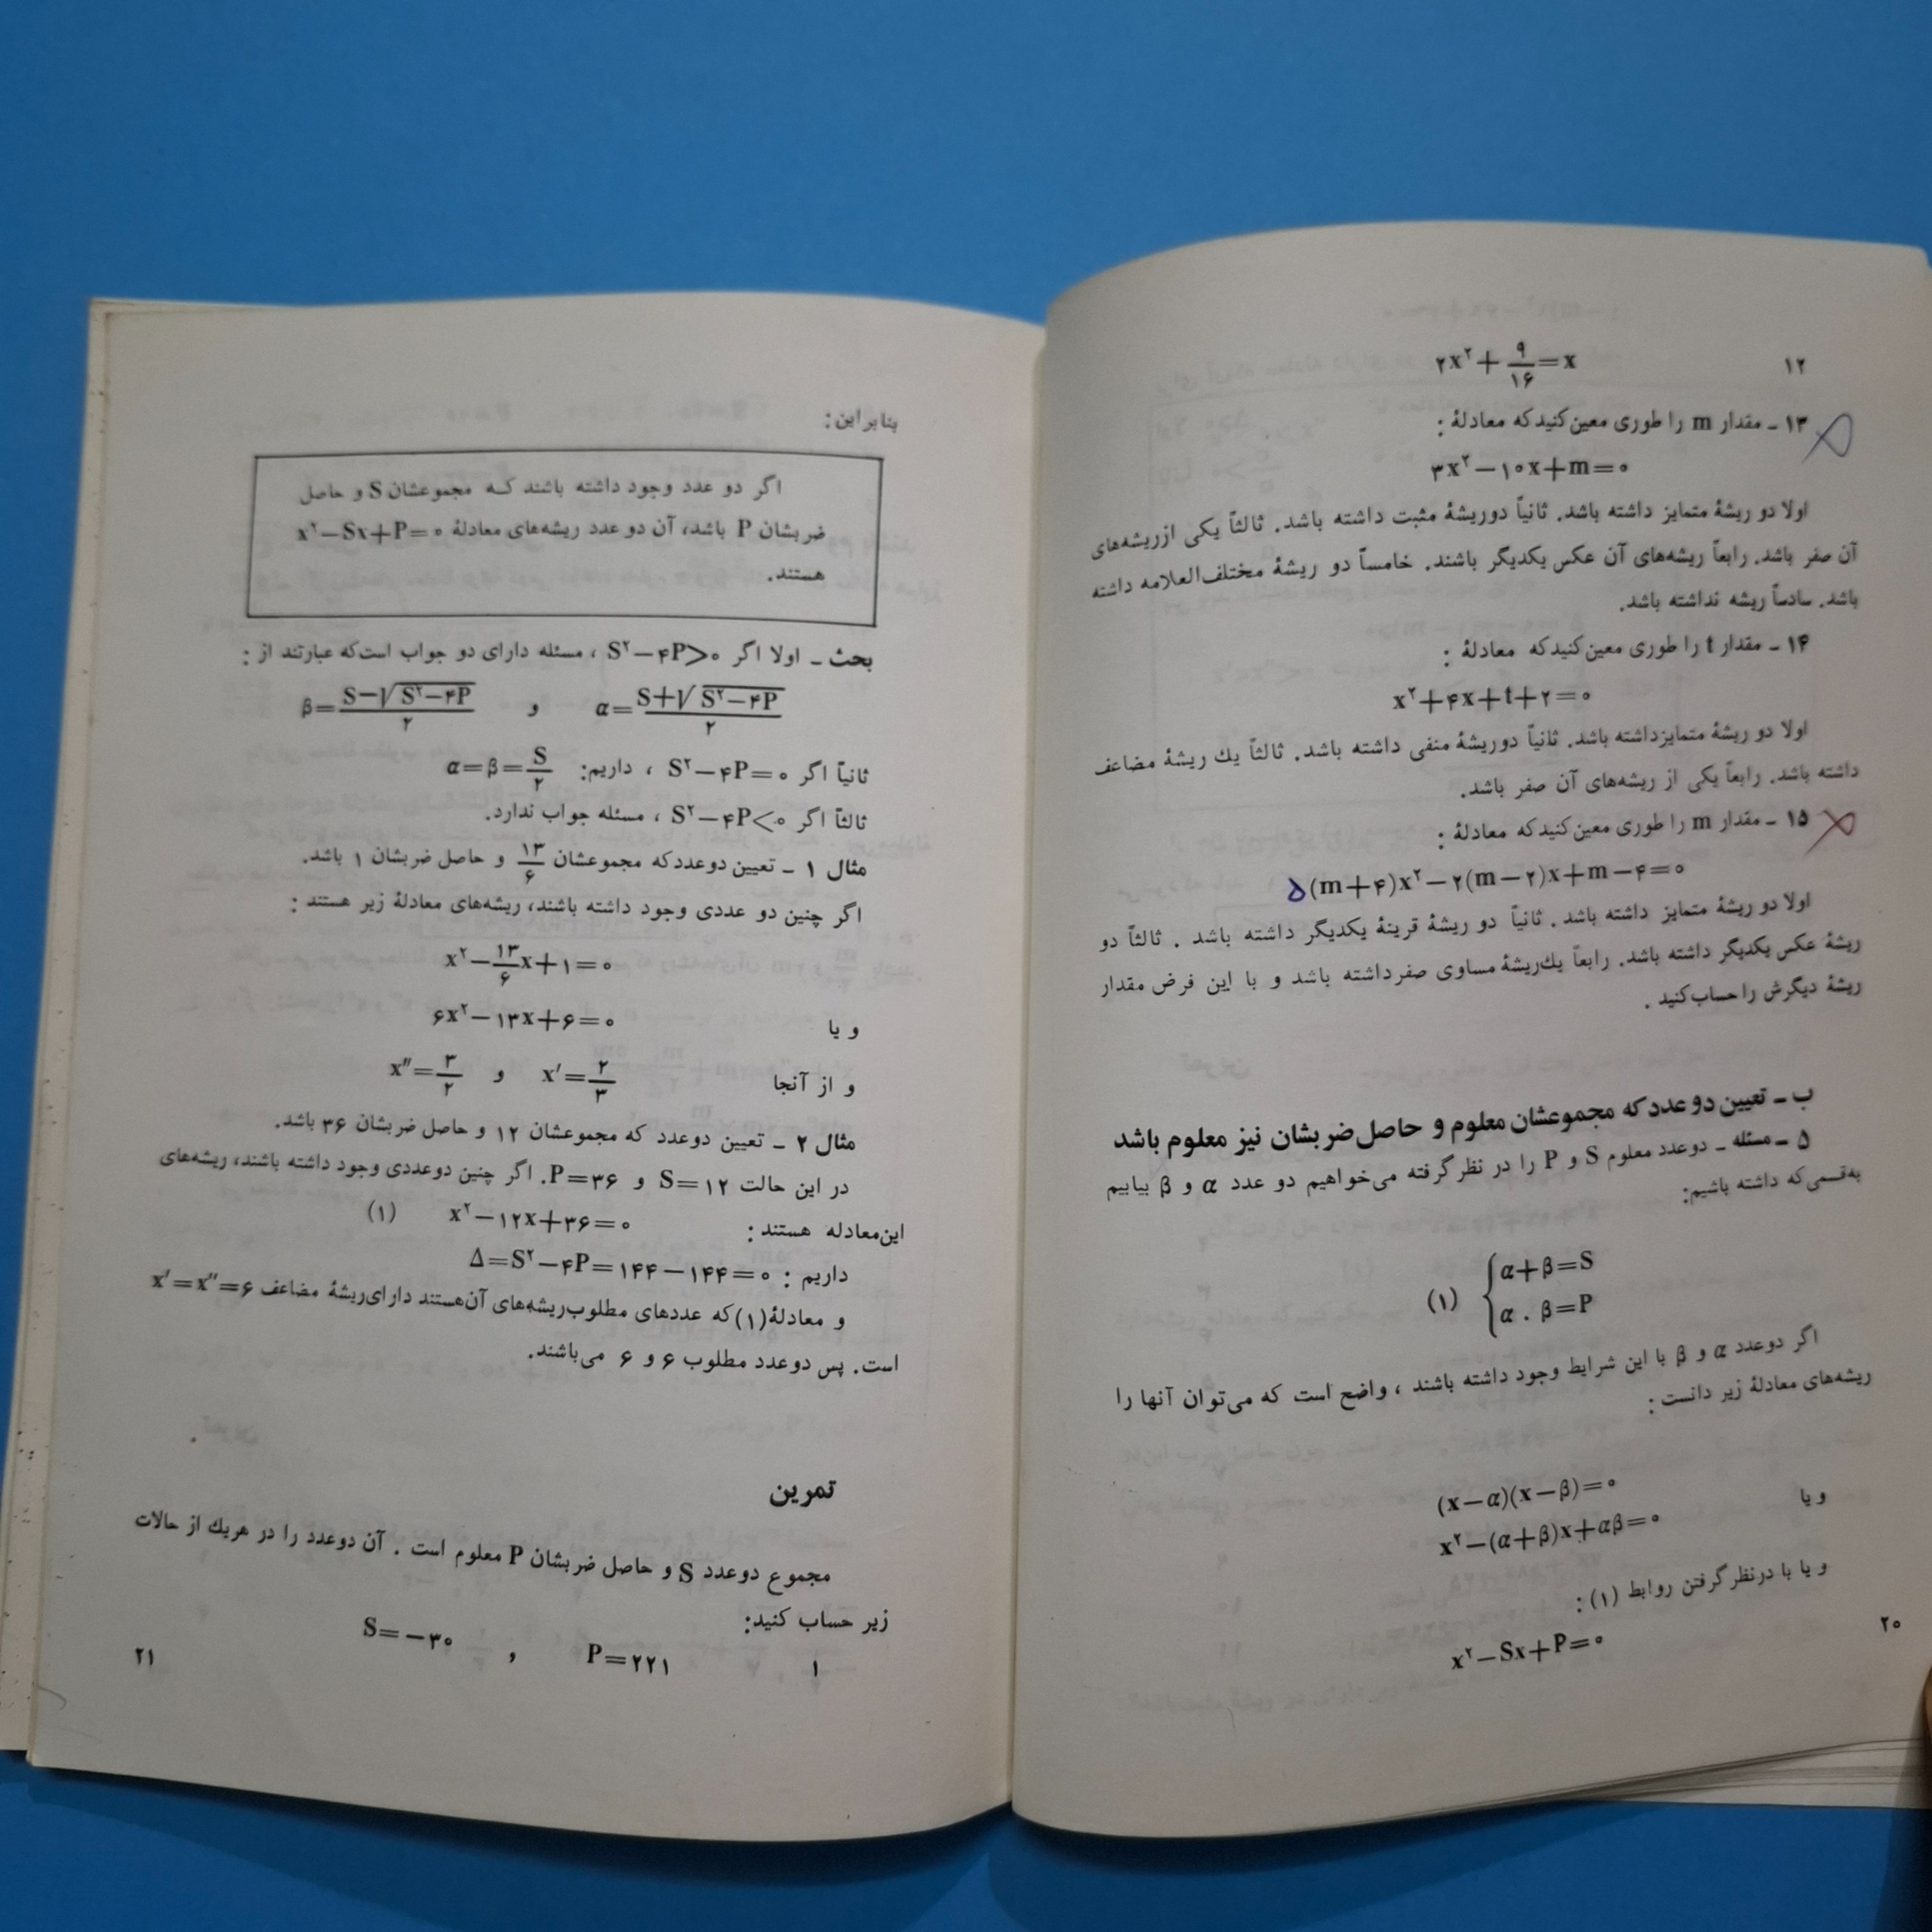 ۱۲ ۲x۲+۹/۱۶=x
۱۳ ـ مقدار m را طوری معین کنید که معادلهٔ :
۳x۲−۱۰x+m=۰
اولا دو ریشهٔ متمایز داشته باشد. ثانیاً دوریشهٔ مثبت داشته باشد. ثالثاً یکی ازریشه‌های
آن صفر باشد. رابعاً ریشه‌های آن عکس یکدیگر باشند. خامساً دو ریشهٔ مختلف‌العلامه داشته
باشد. سادساً ریشه نداشته باشد.
۱۴ ـ مقدار t را طوری معین کنیدکه معادلهٔ :
x۲+۴x+t+۲=۰
اولا دو ریشهٔ متمایزداشته باشد. ثانیاً دوریشهٔ منفی داشته باشد. ثالثاً یك ریشهٔ مضاعف
داشته باشد. رابعاً یکی از ریشه‌های آن صفر باشد.
۱۵ ـ مقدار m را طوری معین کنیدکه معادلهٔ :
۵(m+۴)x۲−۲(m−۲)x+m−۴=۰
اولا دو ریشهٔ متمایز داشته باشد . ثانیاً دو ریشهٔ قرینهٔ یکدیگر داشته باشد . ثالثاً دو
ریشهٔ عکس یکدیگر داشته باشد. رابعاً یك‌ریشهٔ مساوی صفرداشته باشد و با این فرض مقدار
ریشهٔ دیگرش را حساب کنید .
ب ـ تعیین دو عدد که مجموعشان معلوم و حاصل ضربشان نیز معلوم باشد
۵ ـ مسئله ـ دوعدد معلوم S و P را در نظر گرفته می‌خواهیم دو عدد α و β بیابیم
به‌قسمی‌که داشته باشیم:
(۱) {α+β=S
α . β=P
اگر دوعدد α و β با این شرایط وجود داشته باشند ، واضح است که می‌توان آنها را
ریشه‌های معادلهٔ زیر دانست :
(x−α)(x−β)=۰
و یا x۲−(α+β)x+αβ=۰
و یا با درنظر گرفتن روابط (۱) :
x۲−Sx+P=۰
۲۰
بنابراین:
اگر دو عدد وجود داشته باشند که مجموعشان S و حاصل
ضربشان P باشد، آن دو عدد ریشه‌های معادلهٔ x۲−Sx+P=۰
هستند.
بحث ـ اولا اگر S۲−۴P>۰ ، مسئله دارای دو جواب است‌که عبارتند از :
α=(S+√(S۲−۴P))/۲ و β=(S−√(S۲−۴P))/۲
ثانیاً اگر S۲−۴P=۰ ، داریم: α=β=S/۲
ثالثاً اگر S۲−۴P<۰ ، مسئله جواب ندارد.
مثال ۱ ـ تعیین دوعددکه مجموعشان ۱۳/۶ و حاصل ضربشان ۱ باشد.
اگر چنین دو عددی وجود داشته باشند، ریشه‌های معادلهٔ زیر هستند :
x۲−۱۳/۶x+۱=۰
و یا ۶x۲−۱۳x+۶=۰
و از آنجا x′=۲/۳ و x″=۳/۲
مثال ۲ ـ تعیین دوعدد که مجموعشان ۱۲ و حاصل ضربشان ۳۶ باشد.
در این حالت S=۱۲ و P=۳۶. اگر چنین دوعددی وجود داشته باشند، ریشه‌های
این‌معادله هستند : x۲−۱۲x+۳۶=۰ (۱)
داریم : Δ=S۲−۴P=۱۴۴−۱۴۴=۰
و معادلهٔ(۱)که عددهای مطلوب‌ریشه‌های آن‌هستند دارای‌ریشهٔ مضاعف x′=x″=۶
است. پس دوعدد مطلوب ۶ و ۶ می‌باشند.
تمرین
مجموع دوعدد S و حاصل ضربشان P معلوم است . آن دوعدد را در هریك از حالات
زیر حساب کنید:
۱ P=۲۲۱ , S=−۳۰
۲۱